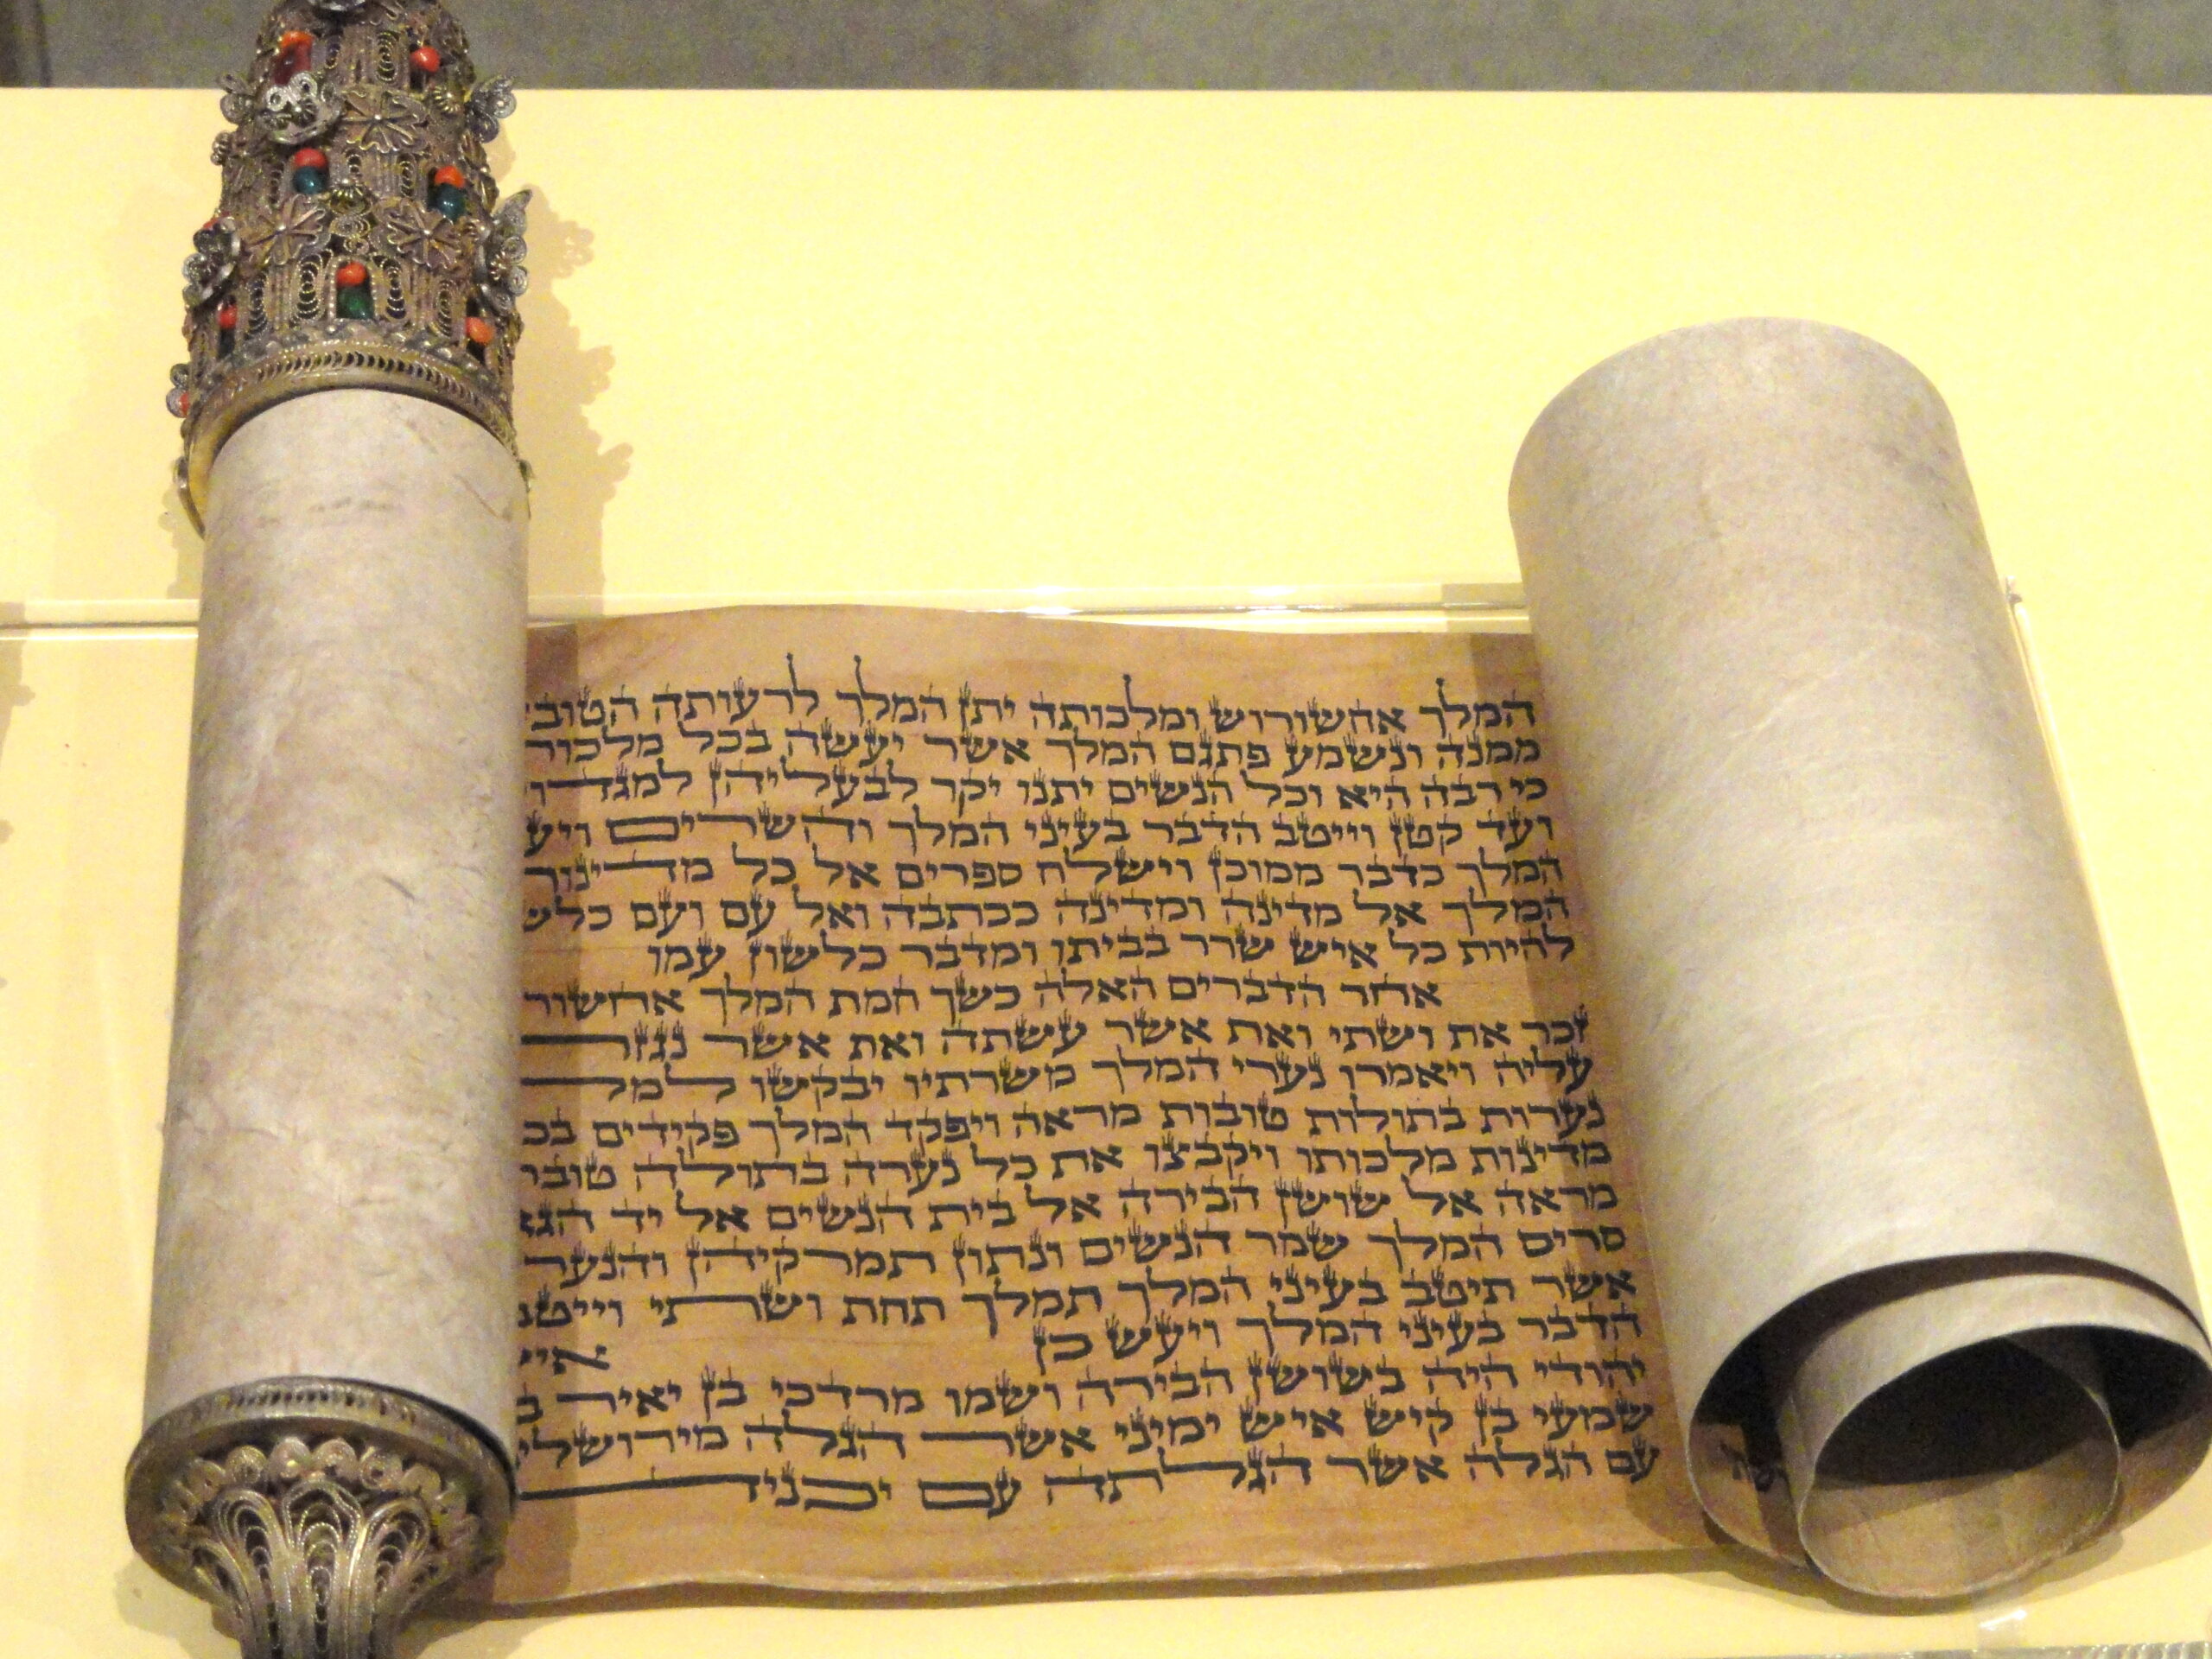 המלך אחשורוש ומלכותה יתן המלך לרעותה הטוב
ממנה ונשמע פתגם המלך אשר יעשה בכל
כי רבה היא וכל הנשים יתנו יקר לבעליהן
ועד קטן וייטב הדבר בעיני המלך והשרים
המלך כדבר ממוכן וישלח ספרים אל כל
המלך אל מדינה ומדינה ככתבה ואל עם ועם
להיות כל איש שרר בביתו ומדבר כלשון עמו
אחר הדברים האלה כשך חמת המלך
זכר את ושתי ואת אשר עשתה ואת אשר נגזר
עליה ויאמרו נערי המלך משרתיו יבקשו למל
נערות בתולות טובות מראה ויפקד המלך פקידים
מדינות מלכותו ויקבצו את כל נערה בתולה
מראה אל שושן הבירה אל בית הנשים אל יד
סרים המלך שמר הנשים ונתון תמרקיהן
אשר תיטב בעיני המלך תמלך תחת ושתי
הדבר בעיני המלך ויעש כן
יהודי היה בשושן הבירה ושמו מרדכי בן יאיר
שמעי בן קיש איש ימיני אשר הגלה
עם הגלה אשר הגלתה עם יכניה